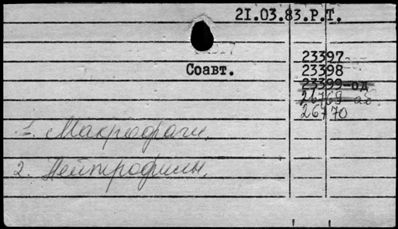 21.03.83.Р.Т.
Соавт.
23397
23398
23399-од
26769-аб
26770
1. Макрофаги.
2. Нейтрофилы.